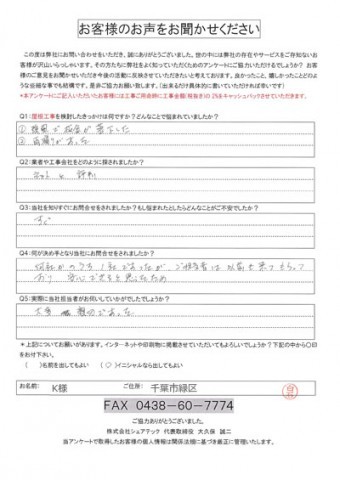 お客様のお声をお聞かせください
この度は弊社にお問い合わせをいただき、誠にありがとうございました。世の中には弊社の存在やサービスをご存知ないお
客様が沢山いらっしゃいます。その方たちに弊社をよく知っていただくためのアンケートにご協力いただけるでしょうか？お客
様のご意見をお聞かせいただき今後の活動に反映させていただきたいと考えております。良かったこと、嬉しかったことどのよ
うな些細な事でも結構です。是非ご協力お願い致します。（出来るだけ具体的に書いていただければ幸いです）
*本アンケートにご記入いただいたお客様には工事ご用命時に工事金額（税抜き）の2%をキャッシュバックさせていただきます。
Q1：屋根工事を検討したきっかけは何ですか？どんなことで悩まれていましたか？
① 強風で板金が落下した
② 雨漏りがあった
Q2：業者や工事会社をどのように探されましたか？
ネット と 評判
Q3：当社を知りすぐにお問合せをされましたか？もし悩まれたとしたらどんなことがご不安でしたか？
すぐ
Q4：何が決め手となり当社にお問合せをされましたか？
何社かのうち1社であったが、ご担当者は以前も来てもらって
おり 安心できると思ったため
Q5：実際に当社担当者がお伺いしていかがでしたでしょうか？
大変 親切であった
＊上記についてお願いがあります。インターネットや印刷物に掲載させていただいてもよろしいでしょうか？下記の中から〇印
をお付け下さい。
（　）名前を出してもよい　（〇）イニシャルなら出してもよい
お名前：　K様　ご住所：　千葉市緑区
FAX 0438-60-7774
ご協力ありがとうございました。
株式会社シェアテック 代表取締役 大久保 誠二
当アンケートで取得したお客様の個人情報は関係法規に基づき厳正に管理いたします。